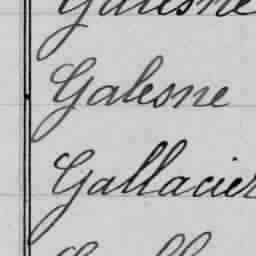 Galesne
Gallacier